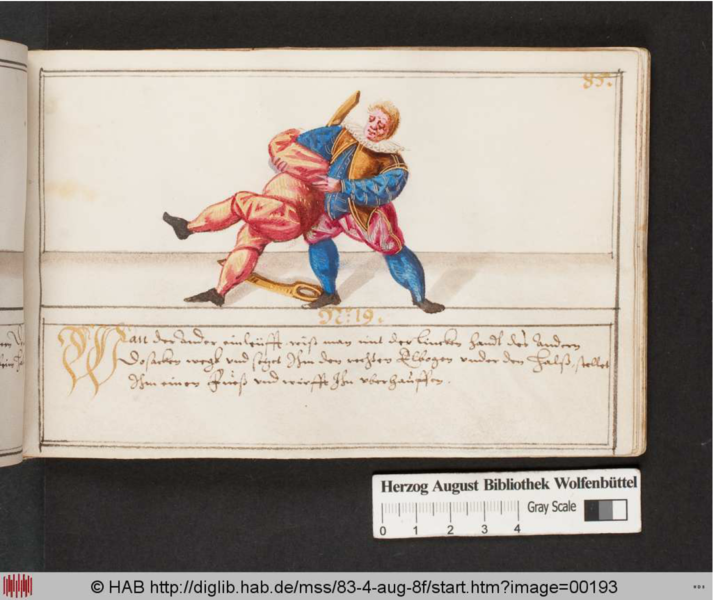 85.
No: 19.
Wan der ander einleüfft, reist man mit der lincken handt des andern
Dosacken wegk und setzet Ihm den rechten Elbogen under den halß, stellet
Ihm einen fueß und wirfft Ihn uberhauffen.
Herzog August Bibliothek Wolfenbüttel
Gray Scale
0 1 2 3 4
© HAB http://diglib.hab.de/mss/83-4-aug-8f/start.htm?image=00193